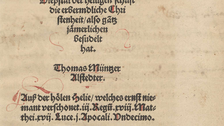 Diepstal der heiligen schrift
die erbermdliche Chri
stenheit/ also gātz
jämerlichen
besudelt
hat.
Thomas Müntzer
Alstedter.
Auß der hölen Helie/ welches ernst nie-
mant verschonet .iij. Regū .xviij. Mat-
thei .xvij. Luce .j. Apocali. Undecimo.